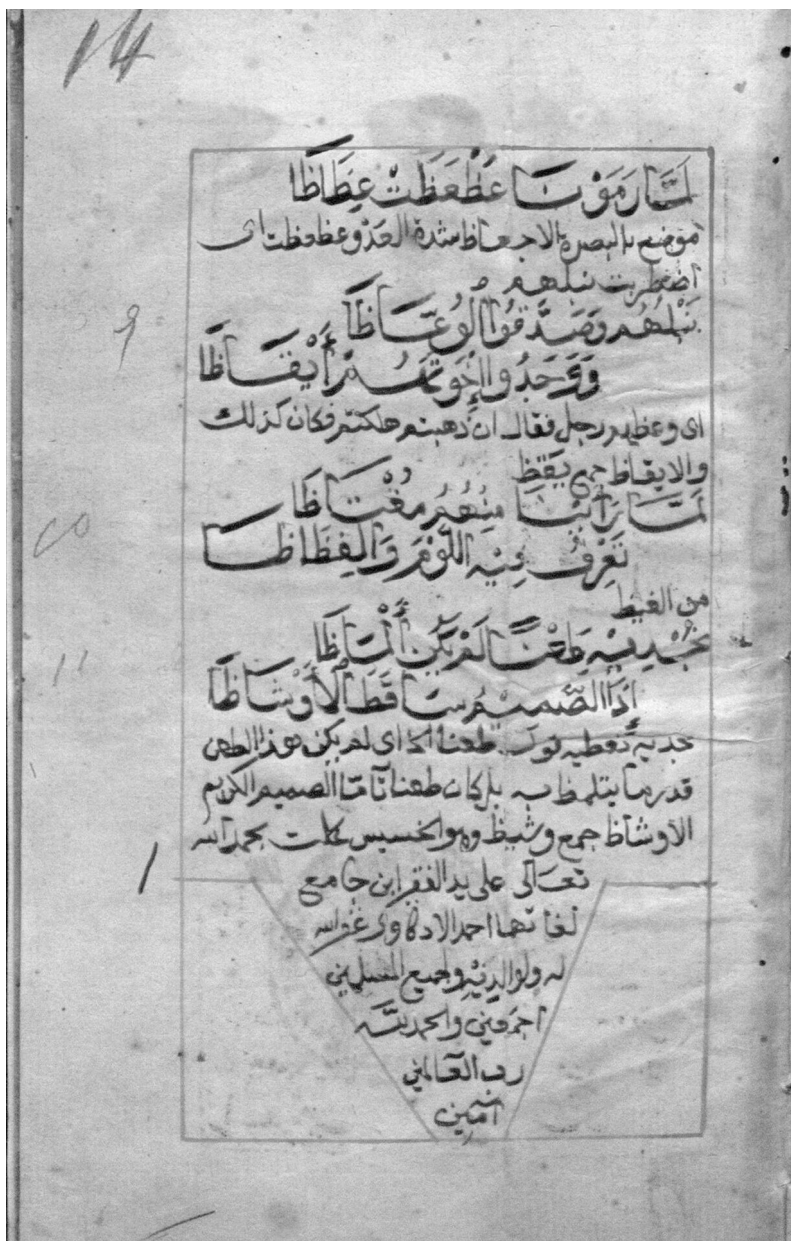 14
لَمَّا رَمَوْنَا عَظْعَظَتْ عِظَاظَا
موضع بالبصرة الاجعاظ شدة العدو عظعظت اى
اضطربت نبلهم
نَبْلُهُمْ وَصَدَّقُوا الْوُعَّاظَا
وَوَجَدُوا إِخْوَتَهُمْ أَيْقَاظَا
9
اى وعظهم رجل فقال ان ذهبتم هلكتم فكان كذلك
والايقاظ جمع يقظ
لَمَّا رَأَيْنَا مِنْهُمُ مُغْتَاظَا
10
تَعْرِفُ فِيهِ اللُّؤْمَ وَالْفِظَاظَا
من الغيظ
نُحْذِيهِ طَعْنًا لَمْ يَكُنْ أَلْمَاظَا
11
إِذَا الصَّمِيمُ سَاقَطَ الْأَوْشَاظَا
نحذيه نعطيه طعنا اى لم يكن هذا الطعن
قدر ما يتلمظ به بل كان طعنا تاما الصميم الكريم
الاوشاظ جمع وشيظ وهو الخسيس كملت بحمد الله
1
تعالى على يد الفقير ابن جامع
لغاتهما احمد غفر الله
له ولوالديه ولجميع المسلمين
اجمعين والحمد لله
رب العالمين
آمين